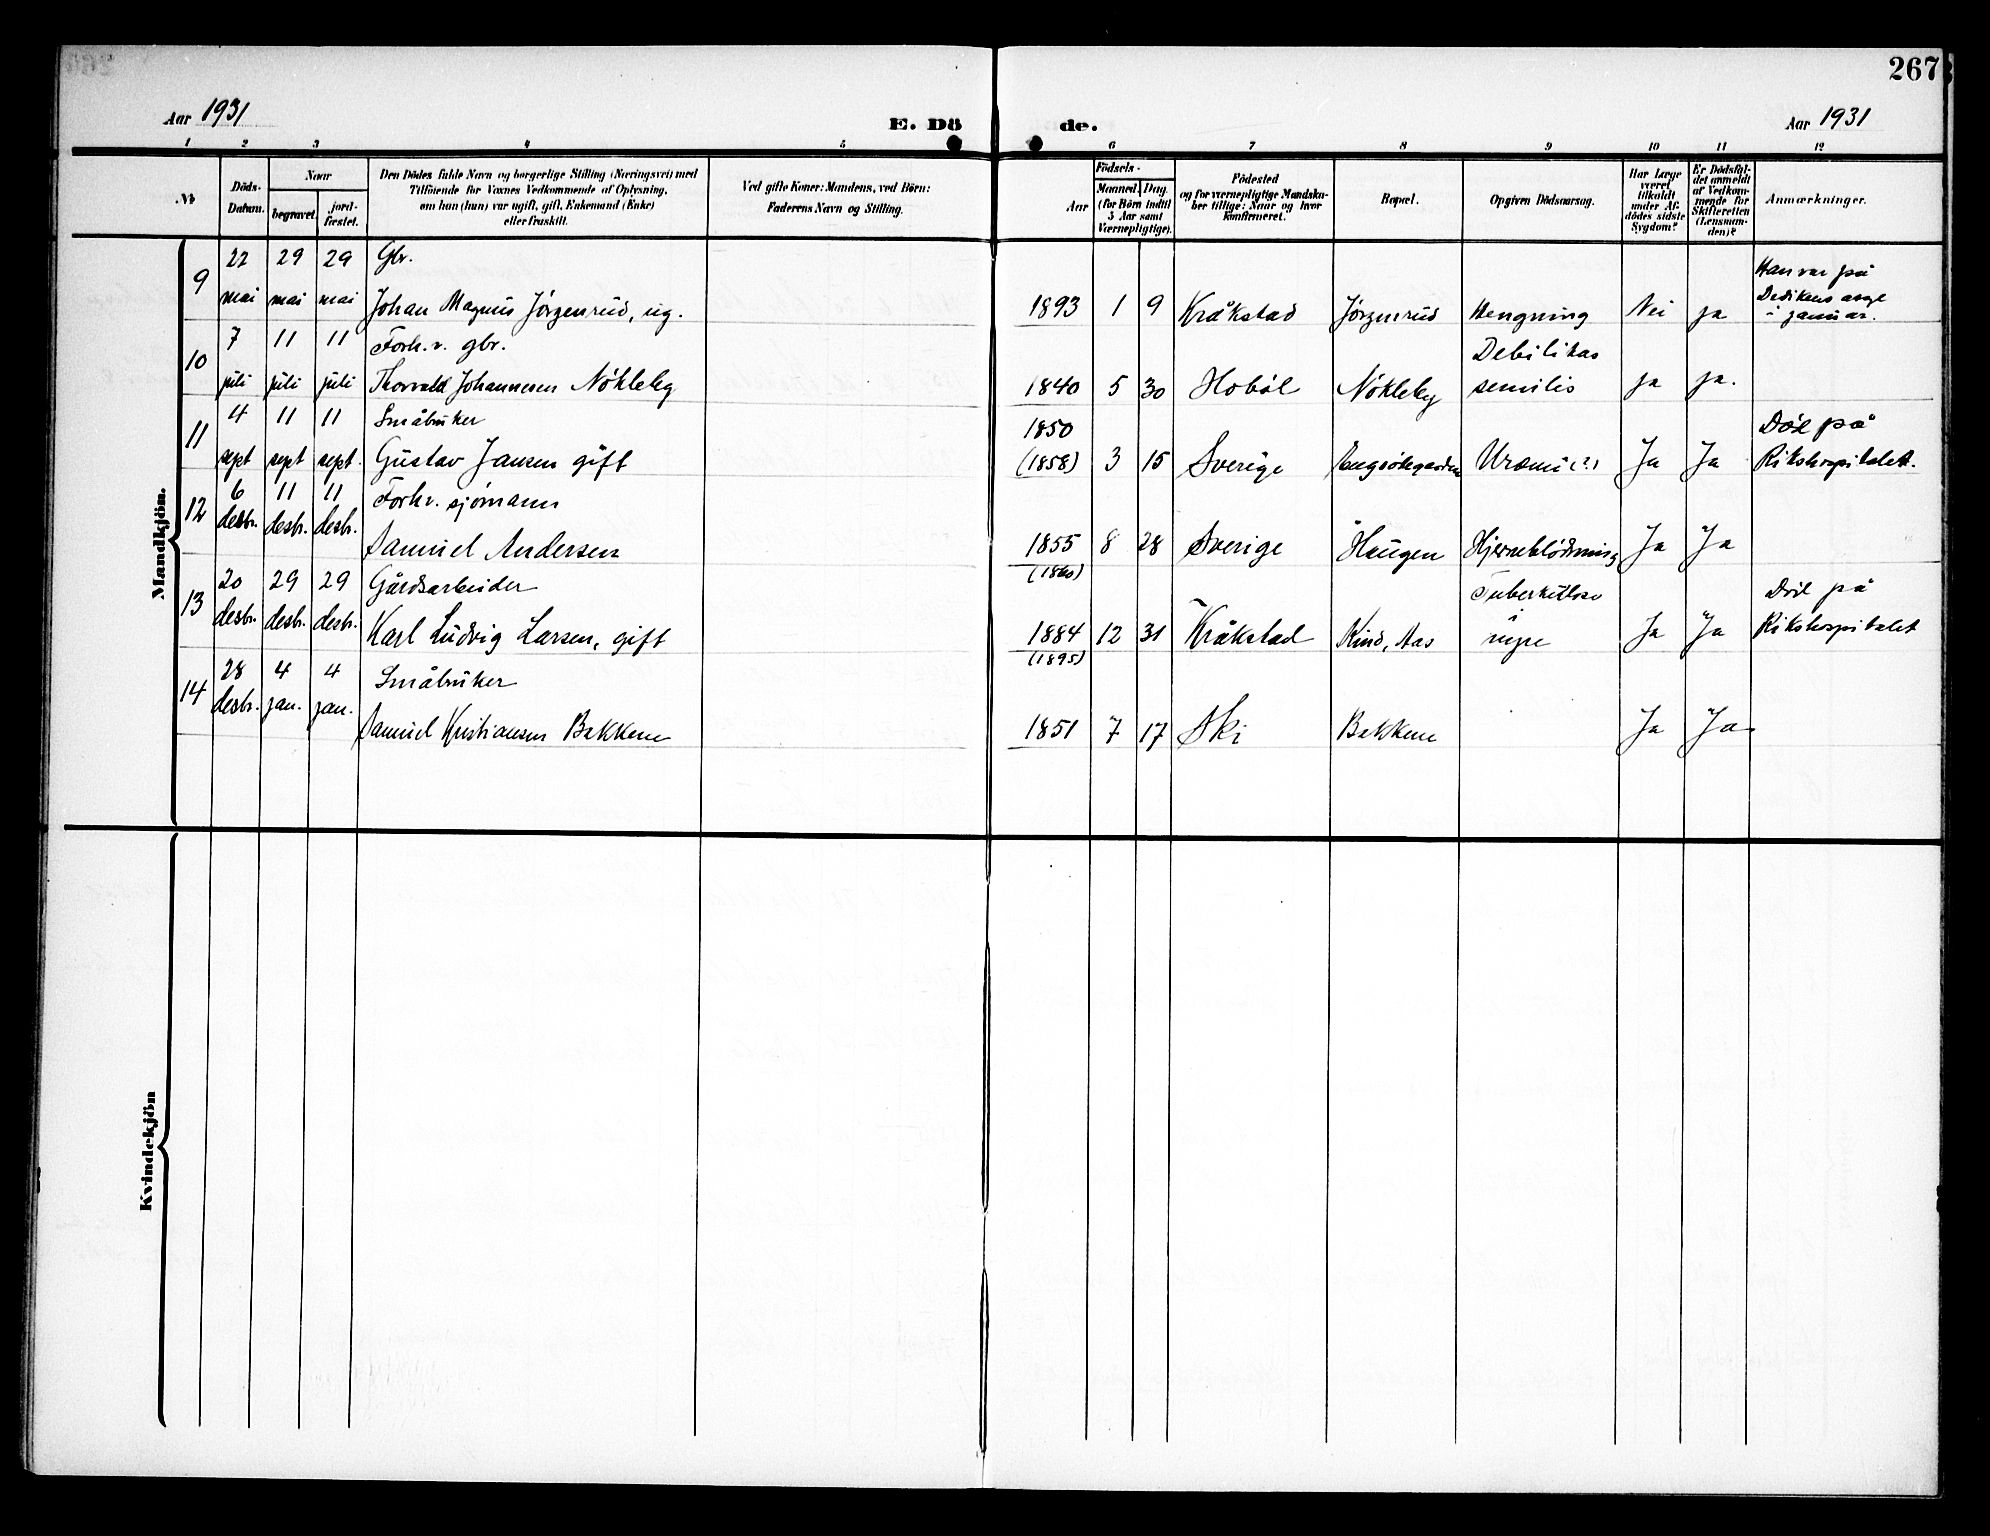 267
Aar 1931
E. Dö de.
Aar 1931
1 2 3 4 5 6 7 8 9 10 11 12
№
Döds-
Datum.
Naar
begravet.
jord-
fæstet.
Den Dödes fulde Navn og borgerlige Stilling (Næringsvei) med
Tilföiende for Voxnes Vedkommende af Oplysning,
om han (hun) var ugift, gift, Enkemand (Enke)
eller fraskilt.
Ved gifte Koner: Mandens, ved Börn:
Faderens Navn og Stilling.
Födsels-
Aar
Maaned. Dag.
(for Börn indtil
3 Aar samt
Værnepligtige).
Födested
og for værnepligtige Mandska-
ber tillige: Naar og hvor
konfirmeret.
Bopæl.
Opgiven Dödsaarsag.
Har Læge
været
tilkaldt
under Af-
dödes sidste
Sygdom?
Er Dödsfal-
det anmeldt
af Vedkom-
mende for
Skifteretten
(Lensman-
den)?
Anmærkninger.
Mandkjön.
9
22 mai
29 mai
29 mai
Gbr.
Johan Magnus Jörgenrud, ug.
1893 1 9
Kråkstad
Jörgenrud
Hengning
Nei
ja
Han var på
Dedikens asyl
i januar.
10
7 juli
11 juli
11 juli
Forh.v. gbr.
Thorvald Johannesen Nökleby
1840 5 30
Hoböl
Nökleby
Debilitas
senilis
ja
ja.
11
4 sept
11 sept
11 sept.
Småbruker
Gustav Jansen gift
1850
(1858) 3 15
Sverige
Uræmi (?)
Ja
Ja
Död på
Rikshospitalet.
12
6 desbr.
11 desbr.
11 desbr.
Forhv. sjömann
Samuel Andersen
1855 8 28
(1860)
Sverige
Haugen
Hjerneblödning
Ja
Ja
13
20 desbr.
29 desbr.
29 desbr.
Gårdsarbeider
Karl Ludvig Larsen, gift
1884 12 31
(1895)
Kråkstad
Kind, Aas
Tuberkulose
i
nyre
Ja
Ja
Död på
Rikshospitalet
14
28 desbr.
4 jan.
4 jan.
Småbruker
Samuel Kristiansen Bakkene
1851 7 17
Ski
Bakkene
Ja
Ja
Kvindekjön